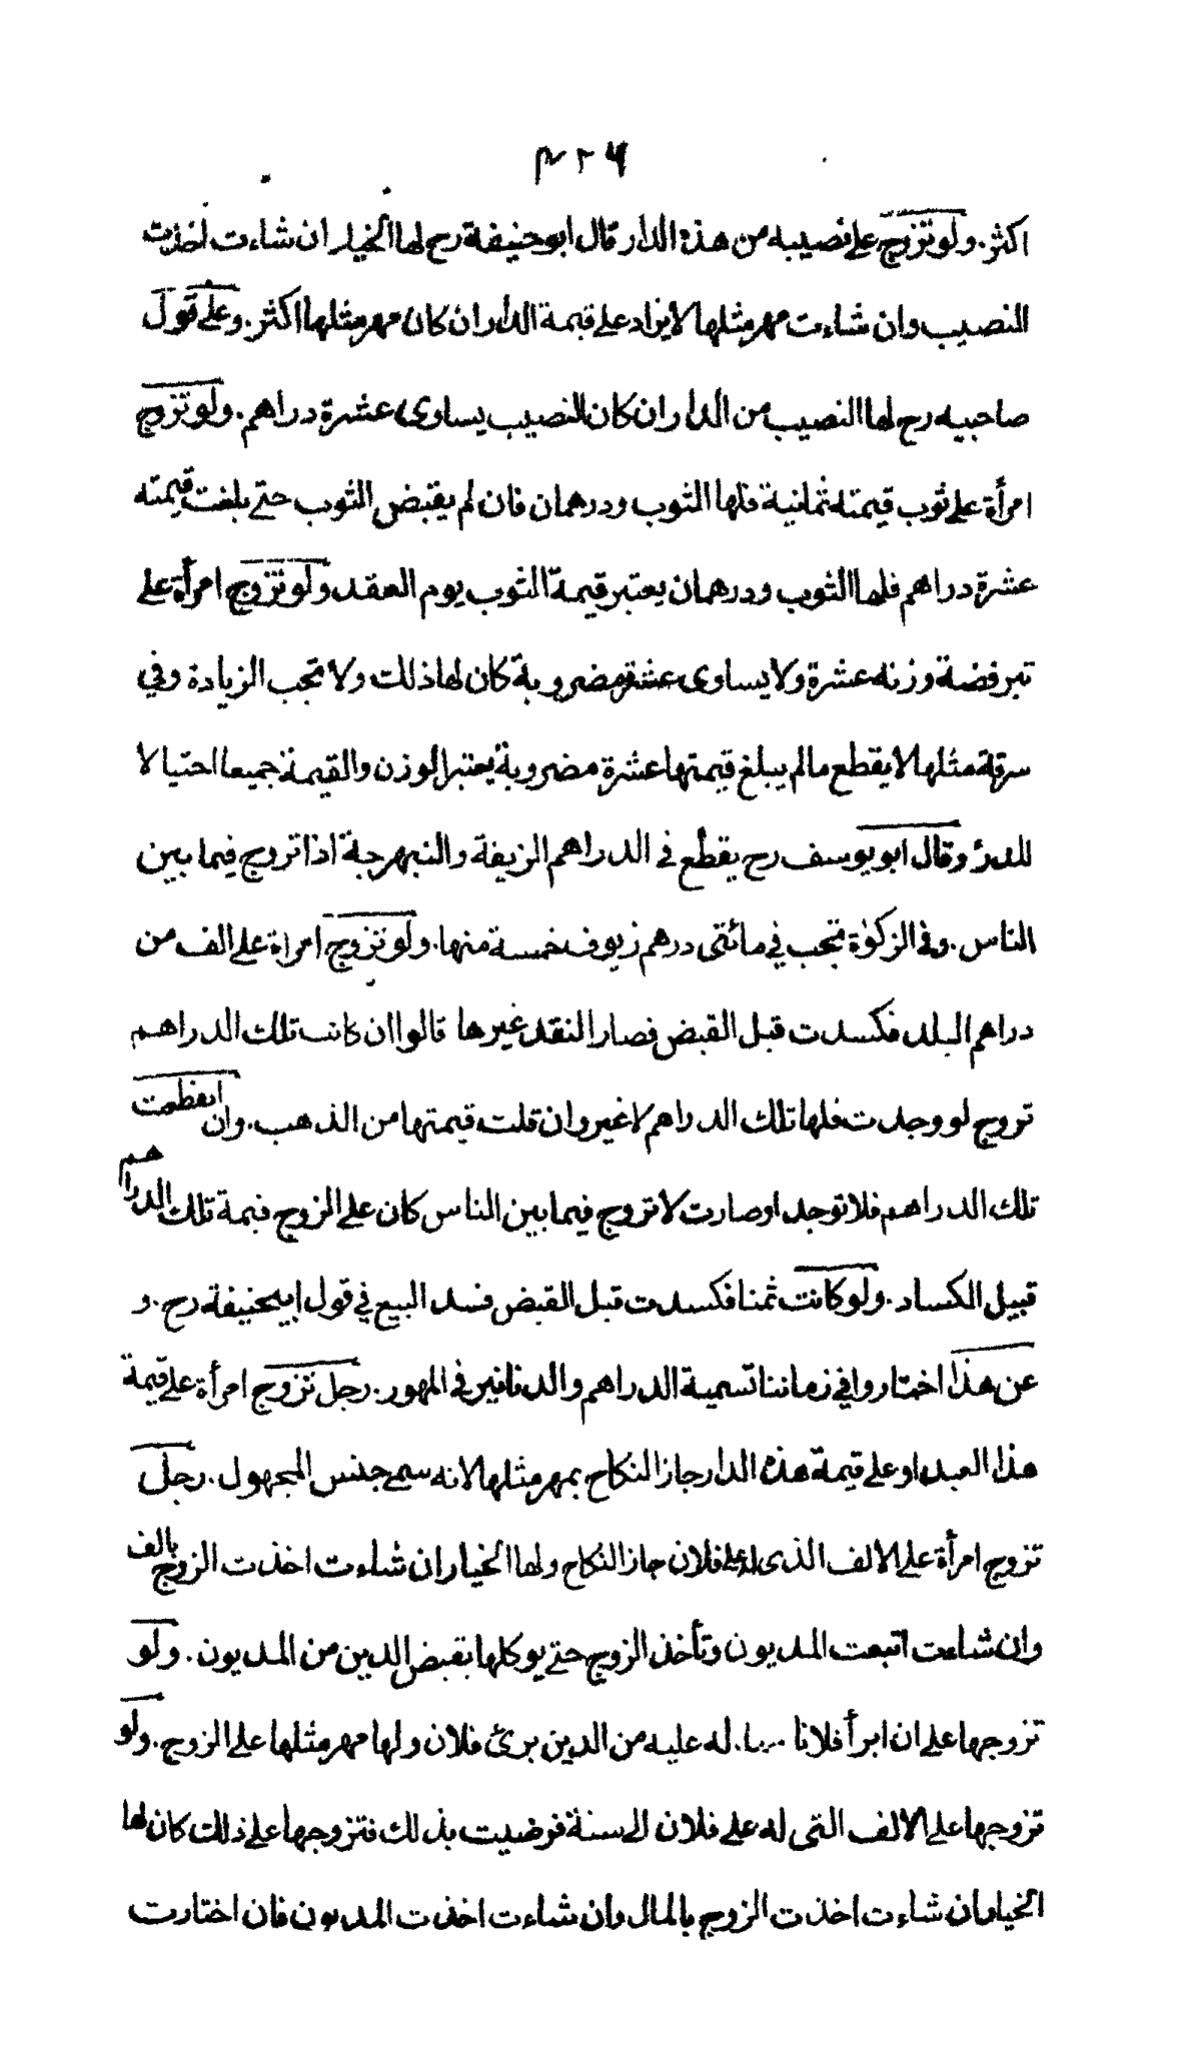 ٤٢٦
اكثر. ولو تزوج على نصيبه من هذه الدار قال ابو حنيفة رح لها الخيار ان شاءت اخذت
النصيب وان شاءت مهر مثلها لا يزاد على قيمة الدار ان كان مهر مثلها اكثر. وعلى قول
صاحبيه رح لها النصيب من الدار ان كان النصيب يساوى عشرة دراهم. ولو تزوج
امرأة على ثوب قيمته ثمانية فلها الثوب ودرهمان فان لم يقبض الثوب حتى بلغت قيمته
عشرة دراهم فلها الثوب ودرهمان يعتبر قيمة الثوب يوم العقد ولو تزوج امرأة على
تبر فضة وزنه عشرة ولا يساوى عشرة مضروبة كان لها ذلك ولا تجب الزيادة وفي
سرقة مثلها لا يقطع مالم يبلغ قيمتها عشرة مضروبة يعتبر الوزن والقيمة جميعا احتيالا
للدرئ وقال ابو يوسف رح يقطع في الدراهم الزيفة والنبهرجة اذا تروج فيما بين
الناس. وفى الزكوٰة تجب في مائتى درهم زيوف خمسة منها. ولو تزوج امراة على الف من
دراهم البلد فكسدت قبل القبض فصار النقد غيرها قالوا ان كانت تلك الدراهم
تروج لو وجدت فلها تلك الدراهم لا غير وان قلت قيمتها من الذهب. وان انقطعت
تلك الدراهم فلا توجد او صارت لا تروج فيما بين الناس كان على الزوج قيمة تلك الدراهم
قبيل الكساد. ولو كانت ثمنا فكسدت قبل القبض فسد البيع في قول ابيحنيفة رح. و
عن هذا اختاروا في زماننا تسمية الدراهم والدنانير فى المهور. رجل تزوج امرأة على قيمة
هذا العبد او على قيمة هذه الدار جاز النكاح بمهر مثلها لانه سمى جنس المجهول. رجل
تزوج امرأة على الالف الذى له على فلان جاز النكاح ولها الخيار ان شاءت اخذت الزوج بالف
وان شاءت اتبعت المديون وتأخذ الزوج حتى يوكلها بقبض الدين من المديون. ولو
تزوجها على ان ابرأ فلانا مما له عليه من الدين برئ فلان ولها مهر مثلها على الزوج. ولو
تزوجها على الالف التى له على فلان الى سنة فرضيت بذلك فتزوجها على ذلك كان لها
الخيار ان شاءت اخذت الزوج بالمال وان شاءت اخذت المديون فان اختارت